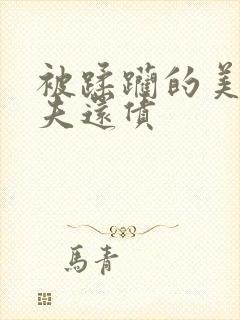 被蹂躪的美
夫還債
馬青